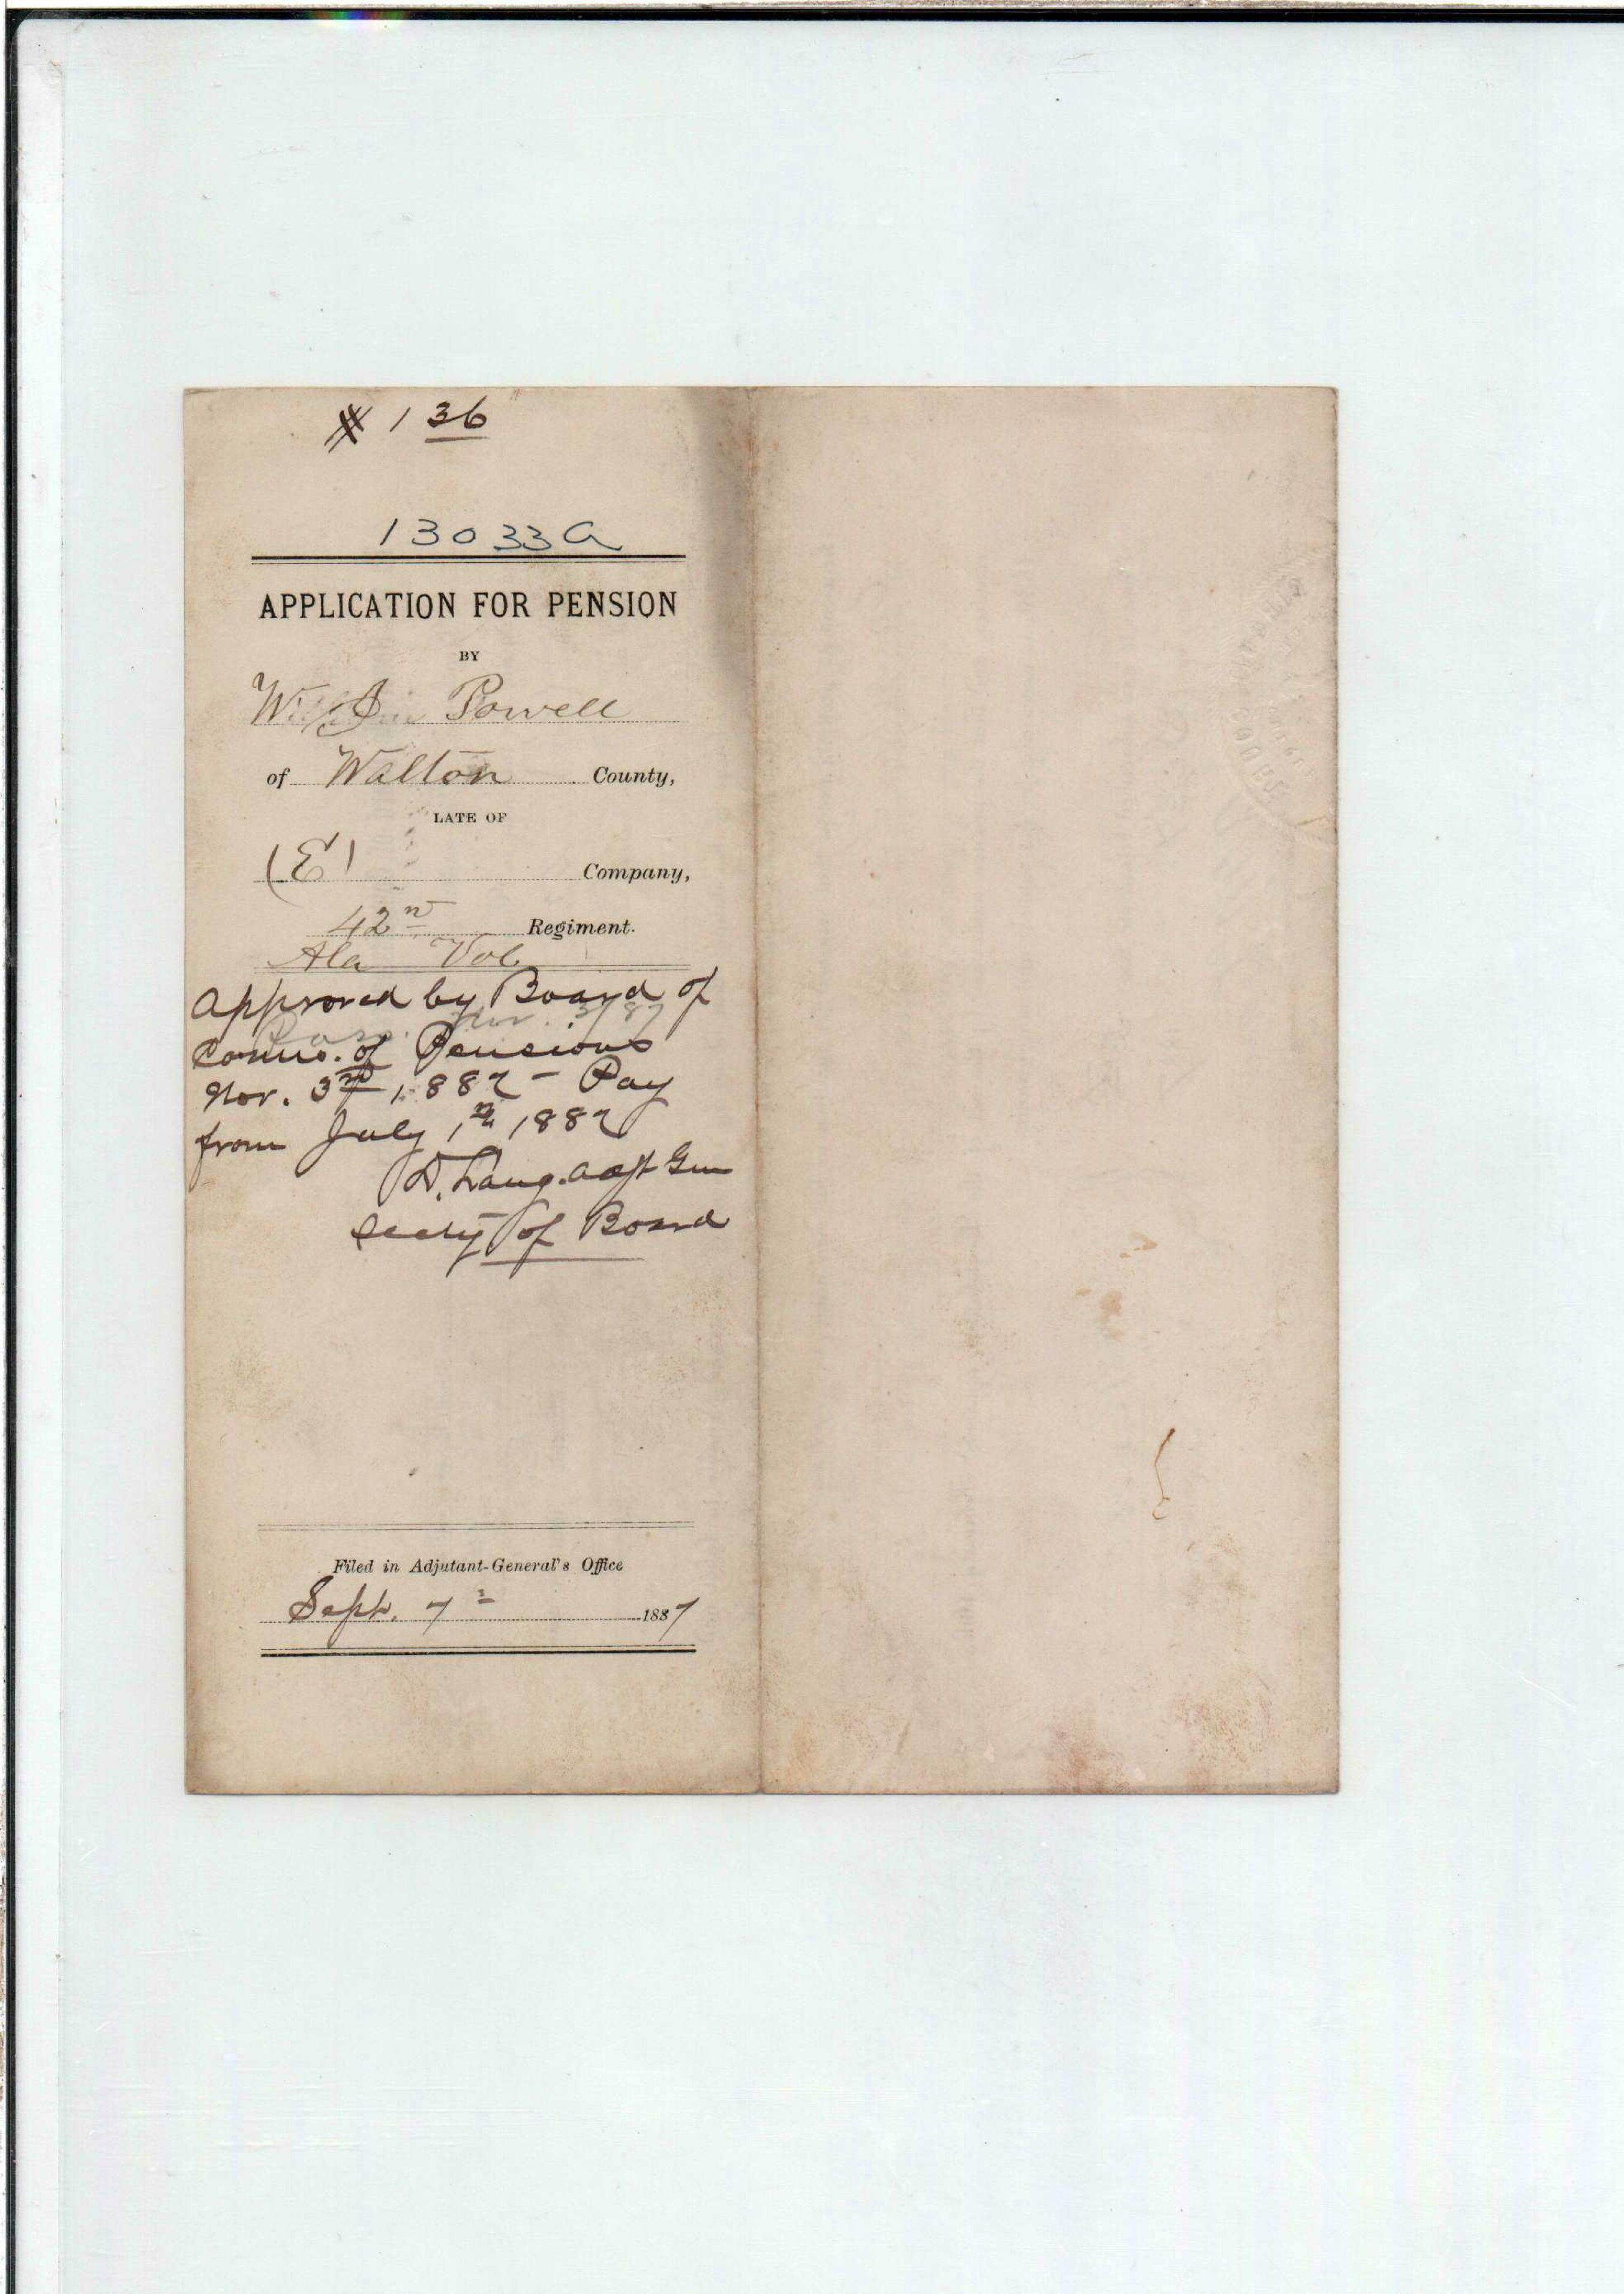 # 136
13033A
APPLICATION FOR PENSION
BY
W. J. Powell
of Walton County,
LATE OF
(E) Company,
42nd Regiment.
Ala Vol.
Approved by Board of
Nov. 3/87
Comrs. of Pensions
Nov. 3rd, 1887 - Pay
from July 1st, 1887
D. Lang. Adjt Gen
Secty of Board
Filed in Adjutant-General's Office
Sept. 7th 1887